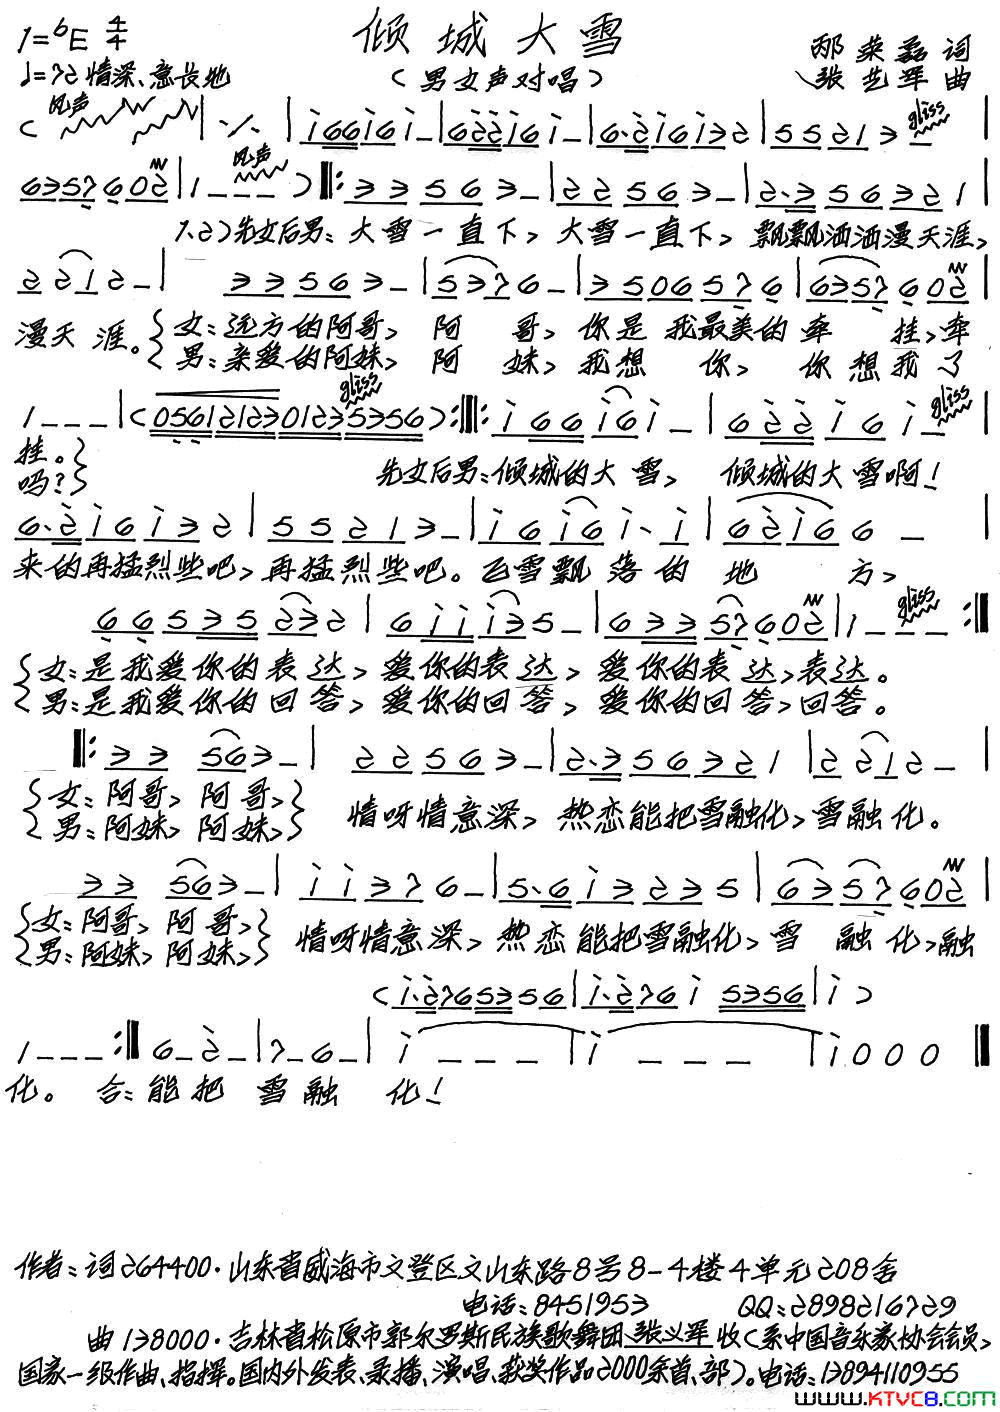 倾城大雪
1=♭E 4/4
（男女声对唱）
邴荣磊 词
♩=72 情深、意长地
张艺军 曲
风声 gliss
( | ·/· | i66i6 i- | 622i6 i- | 6·2i6i32 | 55213 - |
风声
6357602 | 1--- ) ‖: 33563- | 22563- | 2·356321 |
1.2)先女后男：大雪一直下，大雪一直下，飘飘洒洒漫天涯，
2212- | 33563- | 5376- | 3506576 | 6357602 |
漫天涯。 女：远方的阿哥，阿哥，你是我最美的牵挂，牵
男：亲爱的阿妹，阿妹，我想你，你想我了
gliss gliss
1--- | (0561212301235356) :‖: i66i6i- | 622i6i- |
挂。
吗？ 先女后男：倾城的大雪，倾城的大雪啊！
6·2i6i32 | 55213- | i6i6i·i | 62i66- |
来的再猛烈些吧，再猛烈些吧。飞雪飘落的地方，
gliss
66535232 | 6iii35- | 63357602 | 1--- :‖
女：是我爱你的表达，爱你的表达，爱你的表达，表达。
男：是我爱你的回答，爱你的回答，爱你的回答，回答。
‖: 33563- | 22563- | 2·356321 | 2212- |
女：阿哥，阿哥，
男：阿妹，阿妹， 情呀情意深，热恋能把雪融化，雪融化。
33563- | ii376- | 5·6i3235 | 6357602 |
女：阿哥，阿哥，
男：阿妹，阿妹， 情呀情意深，热恋能把雪融化，雪融化，融
(i·2765356 | i·276i5356 | i)
1--- :‖ 6-2- | 7-6- | i--- | i--- | i000 ‖
化。合：能把雪融化！
作者：词264400·山东省威海市文登区文山东路8号8-4楼4单元208舍
电话：8451953 QQ：2898216729
曲138000·吉林省松原市郭尔罗斯民族歌舞团张义军收（系中国音乐家协会会员，
国家一级作曲、指挥。国内外发表、录播、演唱、获奖作品2000余首、部）。电话：13894110955
www.KTVC8.com